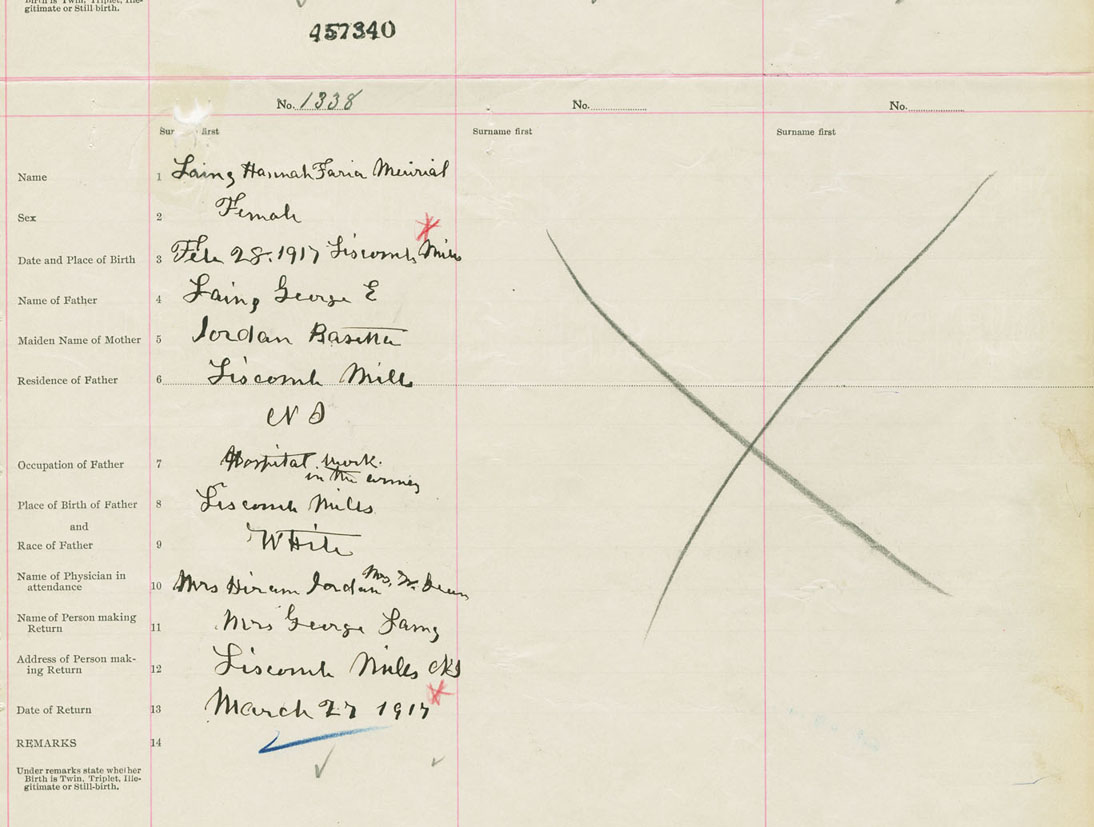 Birth is Twin, Triplet, Ille-
gitimate or Still-birth.
457340
No. 1338 No. No.
Surname first Surname first Surname first
Name 1 Laing Hannah Faria Meirial
Sex 2 Female
Date and Place of Birth 3 Feb 28. 1917 Liscomb Mills
Name of Father 4 Laing George E
Maiden Name of Mother 5 Jordan
Residence of Father 6 Liscomb Mills
N S
Occupation of Father 7 Hospital work.
in the army
Place of Birth of Father 8 Liscomb Mills
and
Race of Father 9 White
Name of Physician in
attendance 10 Mrs Hiram Jordan Mrs.
Name of Person making
Return 11 Mrs George Laing
Address of Person mak-
ing Return 12 Liscomb Mills NS
Date of Return 13 March 27 1917
REMARKS 14
Under remarks state whether
Birth is Twin, Triplet, Ille-
gitimate or Still-birth.